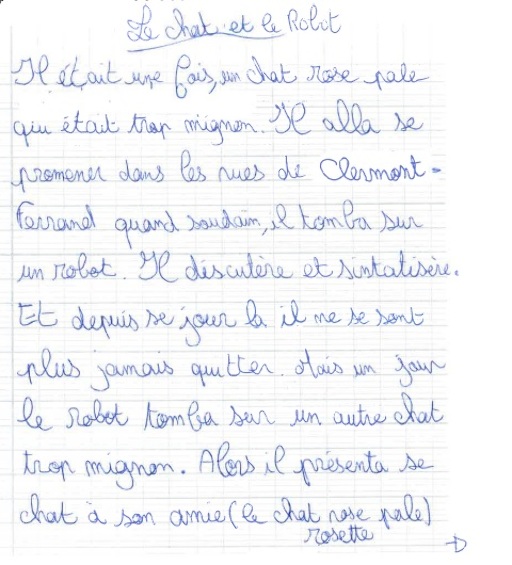 Le chat et le Robot
Il était une fois, un chat rose pale
qui était trop mignon. Il alla se
promener dans les rues de Clermont-
Ferrand quand soudain, il tomba sur
un robot. Il discutère et sintatisère.
Et depuis se jour la il ne se sont
plus jamais quitter. Mais un jour
le robot tomba sur un autre chat
trop mignon. Alors il présenta se
chat à son amie (le chat rose pale)
rosette